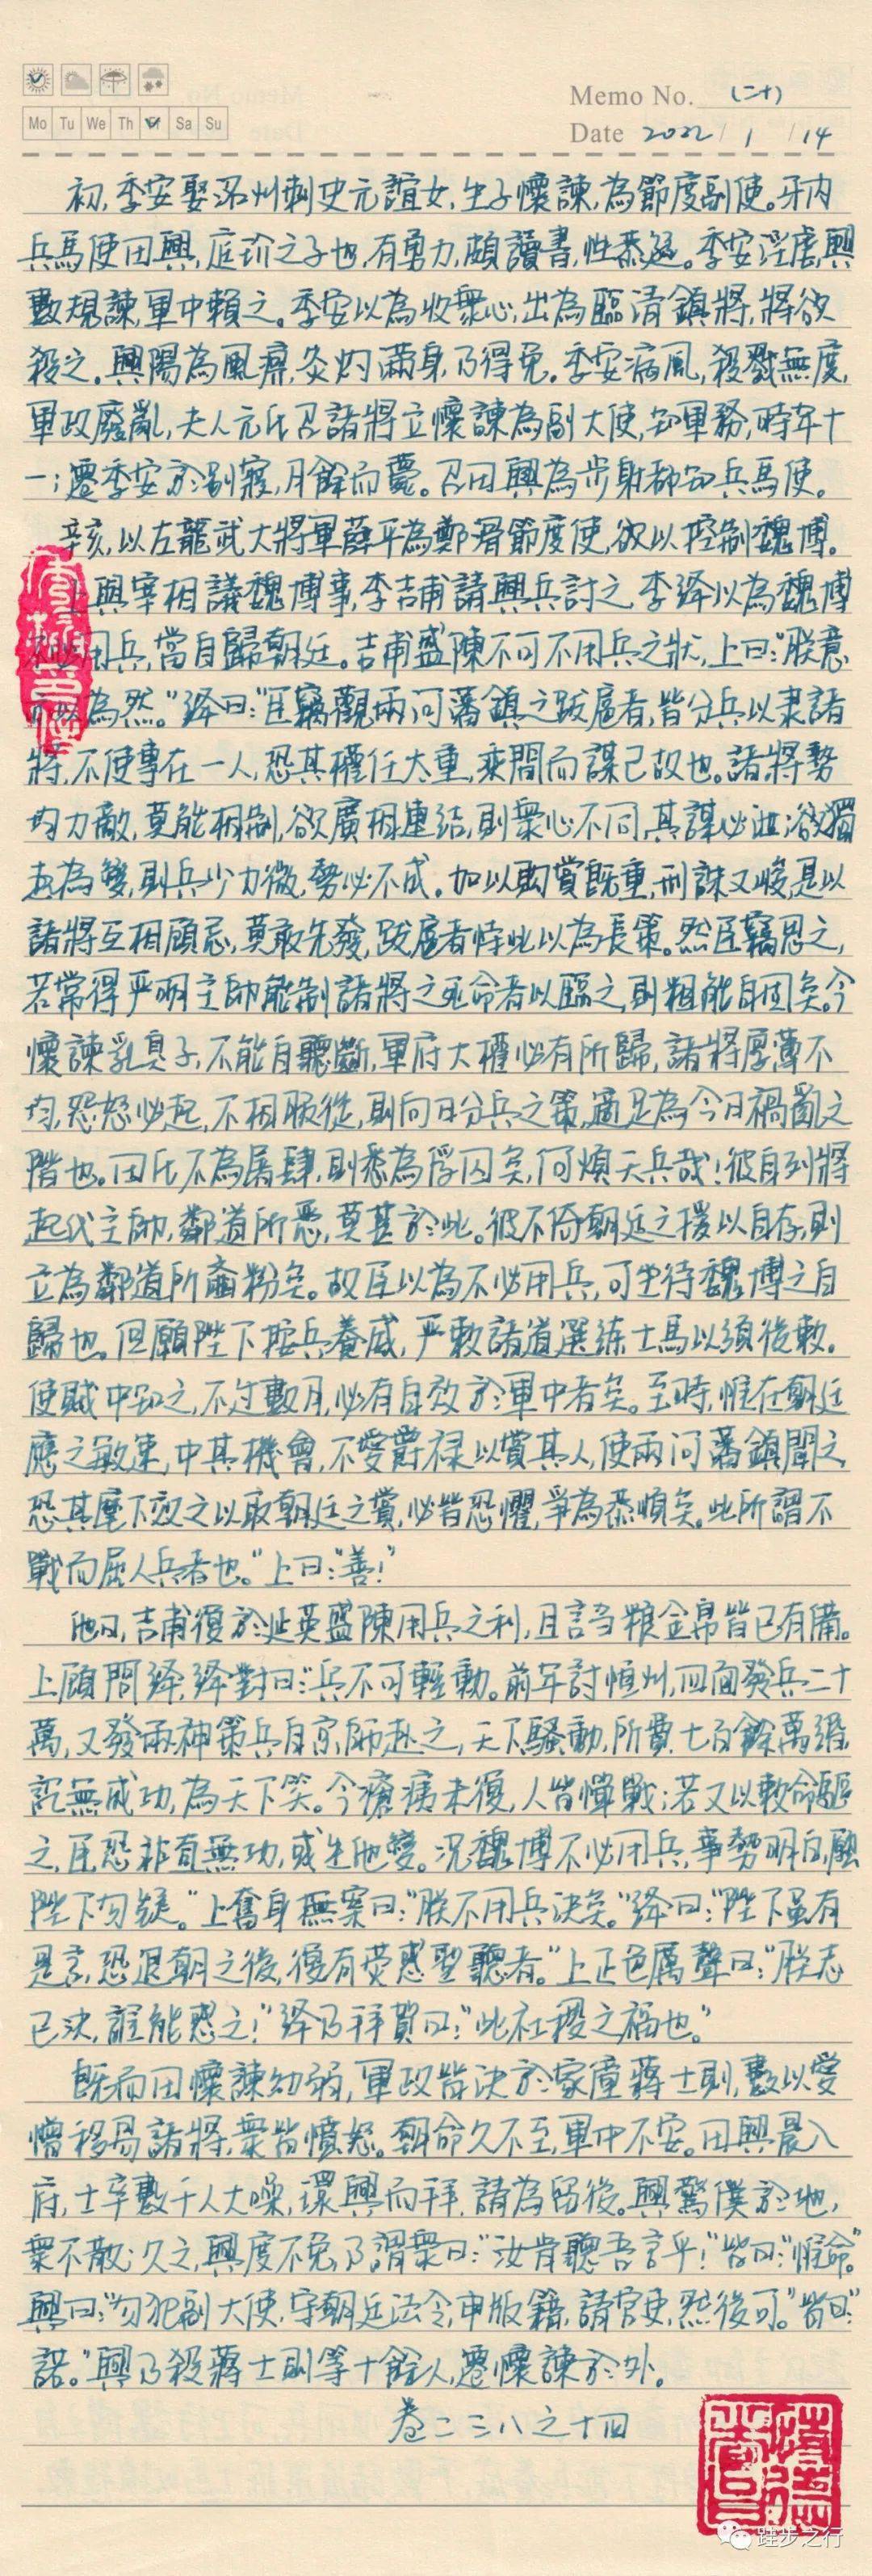 Memo No. (二十)
Mo Tu We Th Fr Sa Su
Date 2022 / 1 / 14
初,季安娶洺州刺史元誼女,生子懷諫,為節度副使。牙内
兵馬使田興,庭玠之子也,有勇力,頗讀書,性恭遜。季安淫虐,興
數規諫,軍中賴之。季安以為收衆心,出為臨清鎮將,將欲
殺之。興陽為風痹,灸灼滿身,乃得免。季安病風,殺戮無度,
軍政廢亂,夫人元氏召諸將立懷諫為副大使,知軍務,時年十
一;遷季安於別寢,月餘而薨。召田興為步射都知兵馬使。
辛亥,以左龍武大將軍薛平為鄭滑節度使,欲以控制魏博。
上與宰相議魏博事,李吉甫請興兵討之,李绛以為魏博
不必用兵,當自歸朝廷。吉甫盛陳不可不用兵之狀,上曰:“朕意
亦以為然。”绛曰:“臣竊觀兩河藩鎮之跋扈者,皆分兵以隶諸
將,不使專在一人,恐其權任太重,乘間而謀己故也。諸將勢
均力敵,莫能相制,欲廣相連结,則衆心不同,其謀必泄;欲獨
起為變,則兵少力微,勢必不成。加以購賞既重,刑誅又峻,是以
諸將互相顧忌,莫敢先發,跋扈者恃此以為長策。然臣竊思之,
若常得严明主帥能制諸將之死命者以臨之,則粗能自固矣。今
懷諫乳臭子,不能自聽斷,軍府大權必有所歸,諸將厚薄不
均,怨怒必起,不相服從,則向日分兵之策,適足為今日禍亂之
階也。田氏不為屠肆,則悉為俘囚矣,何煩天兵哉!彼自列將
起代主帥,鄰道所惡,莫甚於此。彼不倚朝廷之援以自存,則
立為鄰道所齏粉矣。故臣以為不必用兵,可坐待魏博之自
歸也。但願陛下按兵養威,严敕諸道選练士馬以須後敕。
使賊中知之,不过數月,必有自效於軍中者矣。至時,惟在朝廷
應之敏速,中其機會,不愛爵禄以賞其人,使兩河藩鎮聞之,
恐其麾下效之以取朝廷之賞,必皆恐懼,爭為恭順矣。此所謂不
戰而屈人兵者也。”上曰:“善!”
他日,吉甫復於延英盛陳用兵之利,且言刍粮金帛皆已有備。
上顧問绛,绛對曰:“兵不可輕動。前年討恒州,四面發兵二十
萬,又發兩神策兵自京師赴之,天下騷動,所費七百餘萬緡,
訖無成功,為天下笑。今瘡痍未復,人皆憚戰;若又以敕命驅
之,臣恐非直無功,或生他變。况魏博不必用兵,事勢明白,願
陛下勿疑。”上奮身撫案曰:“朕不用兵決矣。”绛曰:“陛下虽有
是言,恐退朝之後,復有荧惑聖聽者。”上正色厲聲曰:“朕志
已決,誰能惑之!”绛乃拜賀曰:“此社稷之福也。”
既而田懷諫幼弱,軍政皆決於家僮蔣士則,數以愛
憎移易諸將,衆皆憤怒。朝命久不至,軍中不安。田興晨入
府,士卒數千人大噪,環興而拜,請為留後。興驚僕於地,
衆不散;久之,興度不免,乃謂衆曰:“汝肯聽吾言乎!”皆曰:“惟命。”
興曰:“勿犯副大使,守朝廷法令,申版籍,請官吏,然後可。”皆曰:“
諾。”興乃殺蔣士則等十餘人,遷懷諫於外。
卷二三八之十四
跬步之行